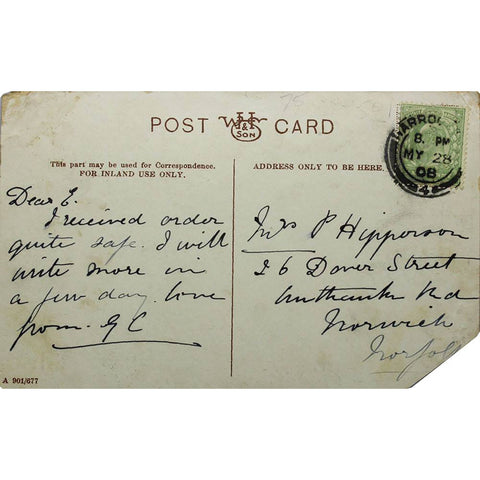 75
POST WHS & SON CARD
This part may be used for Correspondence.
FOR INLAND USE ONLY.
ADDRESS ONLY TO BE HERE.
HARROW
8. PM
MY 28
08
Dear E.
I received order
quite safe. I will
write more in
a few day. love
from. G C
Mrs P Hipperson
26 Dover Street
Unthanks Rd
Norwich
Norfolk
A 901/677